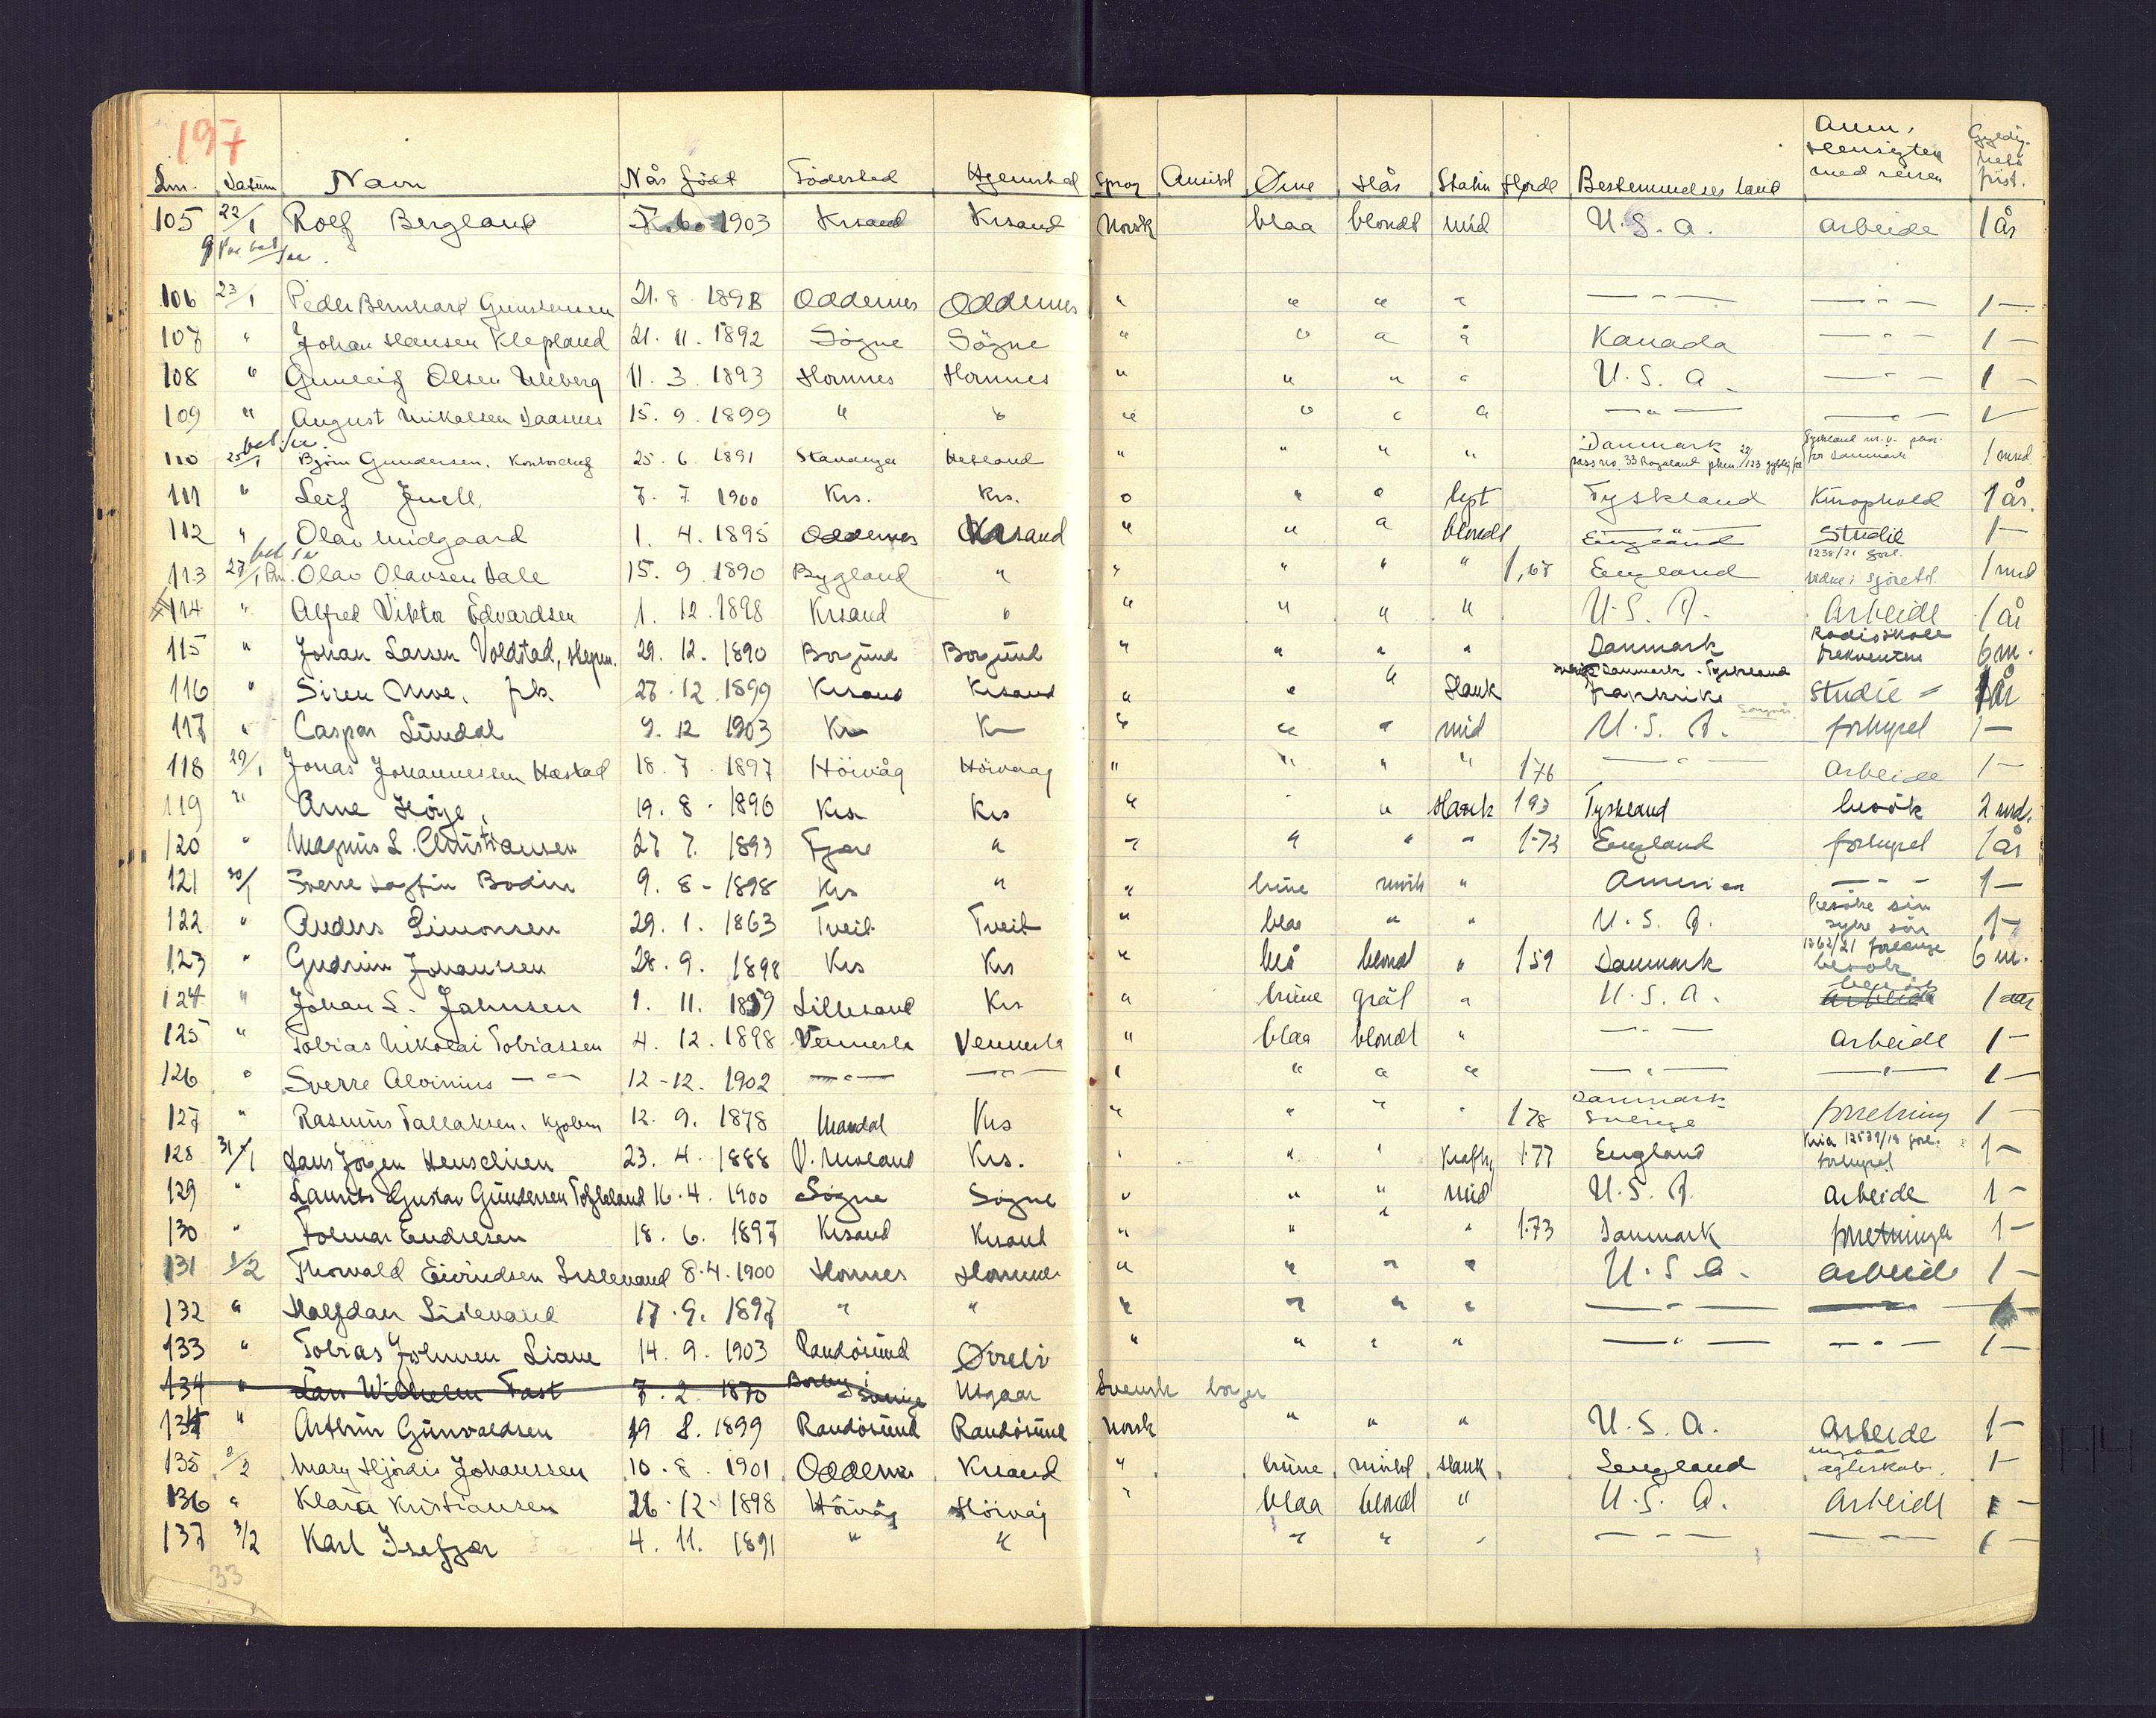 197
Lnr. Datum Navn Når født Födested Hjemsted Sprog Ansikt Øine Hår Statur Høide Bestemmelses land Anm, Hensigten med reisen Gyldighets frist.
105 22/1 Rolf Bergland 6. 1903 Krsand Krsand Norsk blaa blondt mid U.S.A. Arbeide 1 år
106 23/1 Peder Bernhard Gunstensen 21. 8. 1898 Oddernes Oddernes " " " " — " — — " — 1 —
107 " Johan Hansen Klepland 21. 11. 1892 Sögne Sögne " " " " Kanada — " — 1 —
108 " Gunleif Olsen Uleberg 11. 3. 1893 Hornnes Hornnes " " " " U.S.A. — " — 1 —
109 " August Mikalsen Daasnes 15. 9. 1899 " " " " " " — " — — " — 1 —
110 25/1 Björn Gundersen. Kontorchef 25. 6 1891 Stavanger Hetland " " " " Danmark 1 mnd.
pass no. 33 Rogaland for Danmark
111 " Leif Juell. 7. 7. 1900 Krs. Krs. " " " lyst Tyskland Kurophold 1 år.
112 " Olav Midgaard 1. 4. 1895 Oddernes Krsand " " " blondt England Studie 1 —
113 27/1 Olav Olavsen Dale 15. 9. 1890 Bygland " " " " " 1,67 England 1238/21 forl. vidne i sjöretd. 1 mnd
114 " Alfred Viktor Edvardsen 1. 12. 1898 Krsand " " " " " U.S.A. Arbeide 1 år
115 " Johan Larsen Voldstad, 29. 12. 1890 Borgund Borgund " " " " Danmark Radioskole frekventere 6 m.
116 " Siren Owe, frk. 27. 12. 1899 Krsand Krsand " " " Slank Sverige Danmark - Tyskland Frankrike Studie — 1 år
117 " Caspar Lundal 9. 12 1903 Kr— K— " " " mid U.S.A. forhyret 1 —
118 29/1 Jonas Johannessen Hæstad 18. 7. 1897 Höivåg Höivaag " " " " 176 — " — Arbeide 1 —
119 " Arne Höye, 19. 8. 1896 Krs. Krs " " " Slank 193 Tyskland besök 2 mnd.
120 " Magnus L. Christiansen 27 7. 1893 " " " " " 1.73 England forhyret 1 år
121 30/1 Sverre Dagfin Bodin 9. 8 - 1898 Krs " " brune mörk " America — " — 1 —
122 " Anders Simonsen 29. 1. 1863 Tveit Tveit " blaa " " U.S.A. besöke sin syke sön 1 —
123 " Gudrun Johanssen 28. 9. 1898 Krs Krs " blå blond " 159 Danmark 1262/21 forlænge besök 6 m.
124 " Johan S. Jahnsen 1. 11. 1859 Lillesand Krs " brune gråt " U.S.A. besök 1 aar
125 " Tobias Nikolai Tobiassen 4. 12. 1898 Vennesla Vennesla " blaa blondt " — " — Arbeide 1 —
126 " Sverre Alvinius — " — 12 - 12. 1902 — " — — " — " " " " — " — — " — 1 —
127 " Rasmus Tallaksen. Kjøbm 12. 9. 1878 Mandal Krs " " " " 178 Danmark Sverige forretning 1 —
128 31/1 Hans Jörgen Henschien 23. 4. 1888 V. Moland Krs. " " " Kraftig 1.77 England Kria 12539/19 forl. forhyret 1 —
129 " Laurits Gustav Gundersen 16. 4. 1900 Sögne Sögne " " " mid U.S.A. Arbeide 1 —
130 " Folmar Endresen 18. 6. 1897 Krsand Krsand " " " " 1.73 Danmark forretninger 1 —
131 1/2 Thorvald Eivindsen Lislevand 8. 4. 1900 Hornnes Hornnes " " " " U.S.A. Arbeide 1 —
132 " Halfdan Lislevand 17. 9. 1897 " " " " " " — " — 1 —
133 " Tobias Johnsen Liane 14. 9. 1903 Randösund " " " " — " — — " — 1 —
134 " Lars Wilhelm Fast 7. 2. 1870 Sverige Svensk borger
134 " Arthur Gunvaldsen 19 8. 1899 Randösund Randösund Norsk " " " U.S.A. Arbeide 1 —
135 2/2 Mary Hjördis Johanssen 10. 8. 1901 Oddernes Krsand " brune mörkt Slank England inngaa ægteskab. 1 —
136 " Klara Kristiansen 26. 12. 1898 Höivåg Höivåg " blaa blondt " U.S.A. Arbeide 1 —
137 3/2 Karl Isefjær 4. 11. 1891 " " " " " — " — — " — 1 —
33